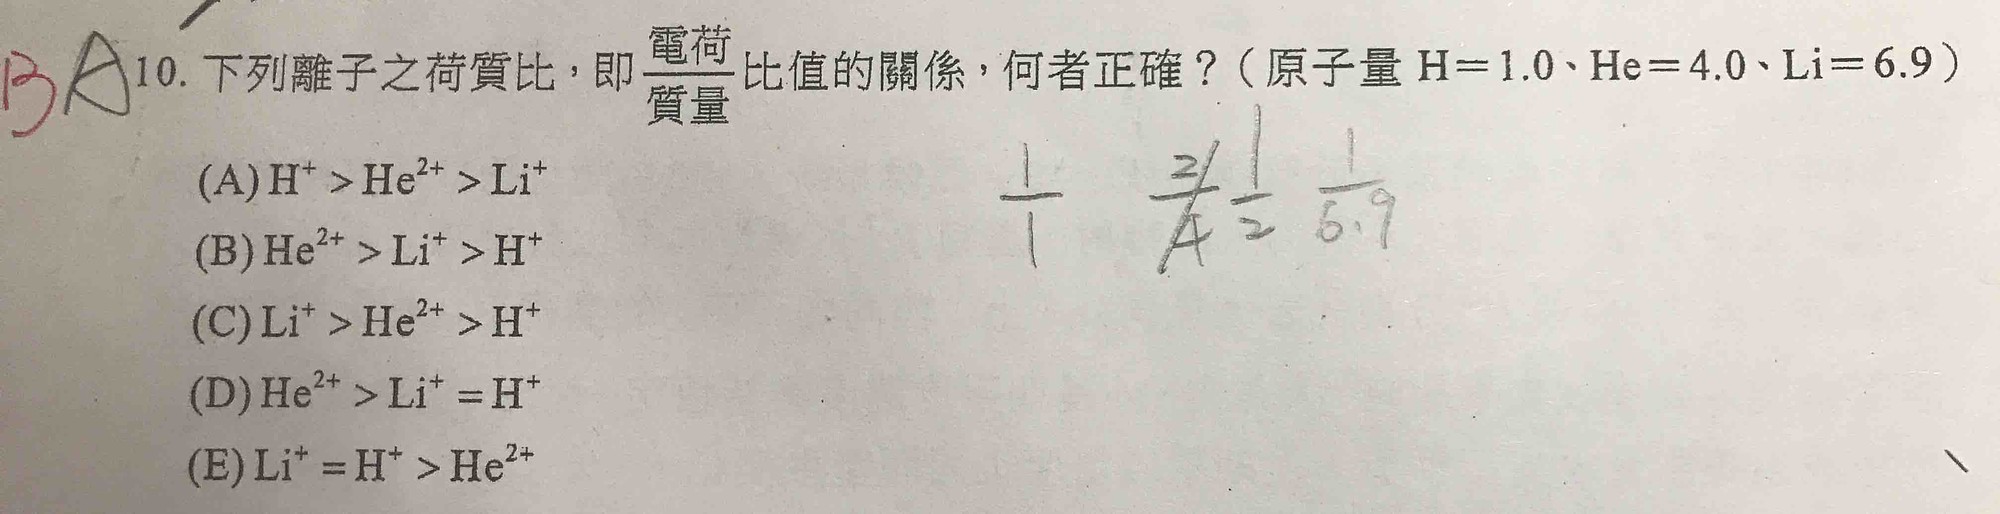 B A 10. 下列離子之荷質比，即電荷/質量比值的關係，何者正確？（原子量 H＝1.0、He＝4.0、Li＝6.9）
(A) H⁺ > He²⁺ > Li⁺
(B) He²⁺ > Li⁺ > H⁺
(C) Li⁺ > He²⁺ > H⁺
(D) He²⁺ > Li⁺ = H⁺
(E) Li⁺ = H⁺ > He²⁺
1/1 2/4 1/2 1/6.9